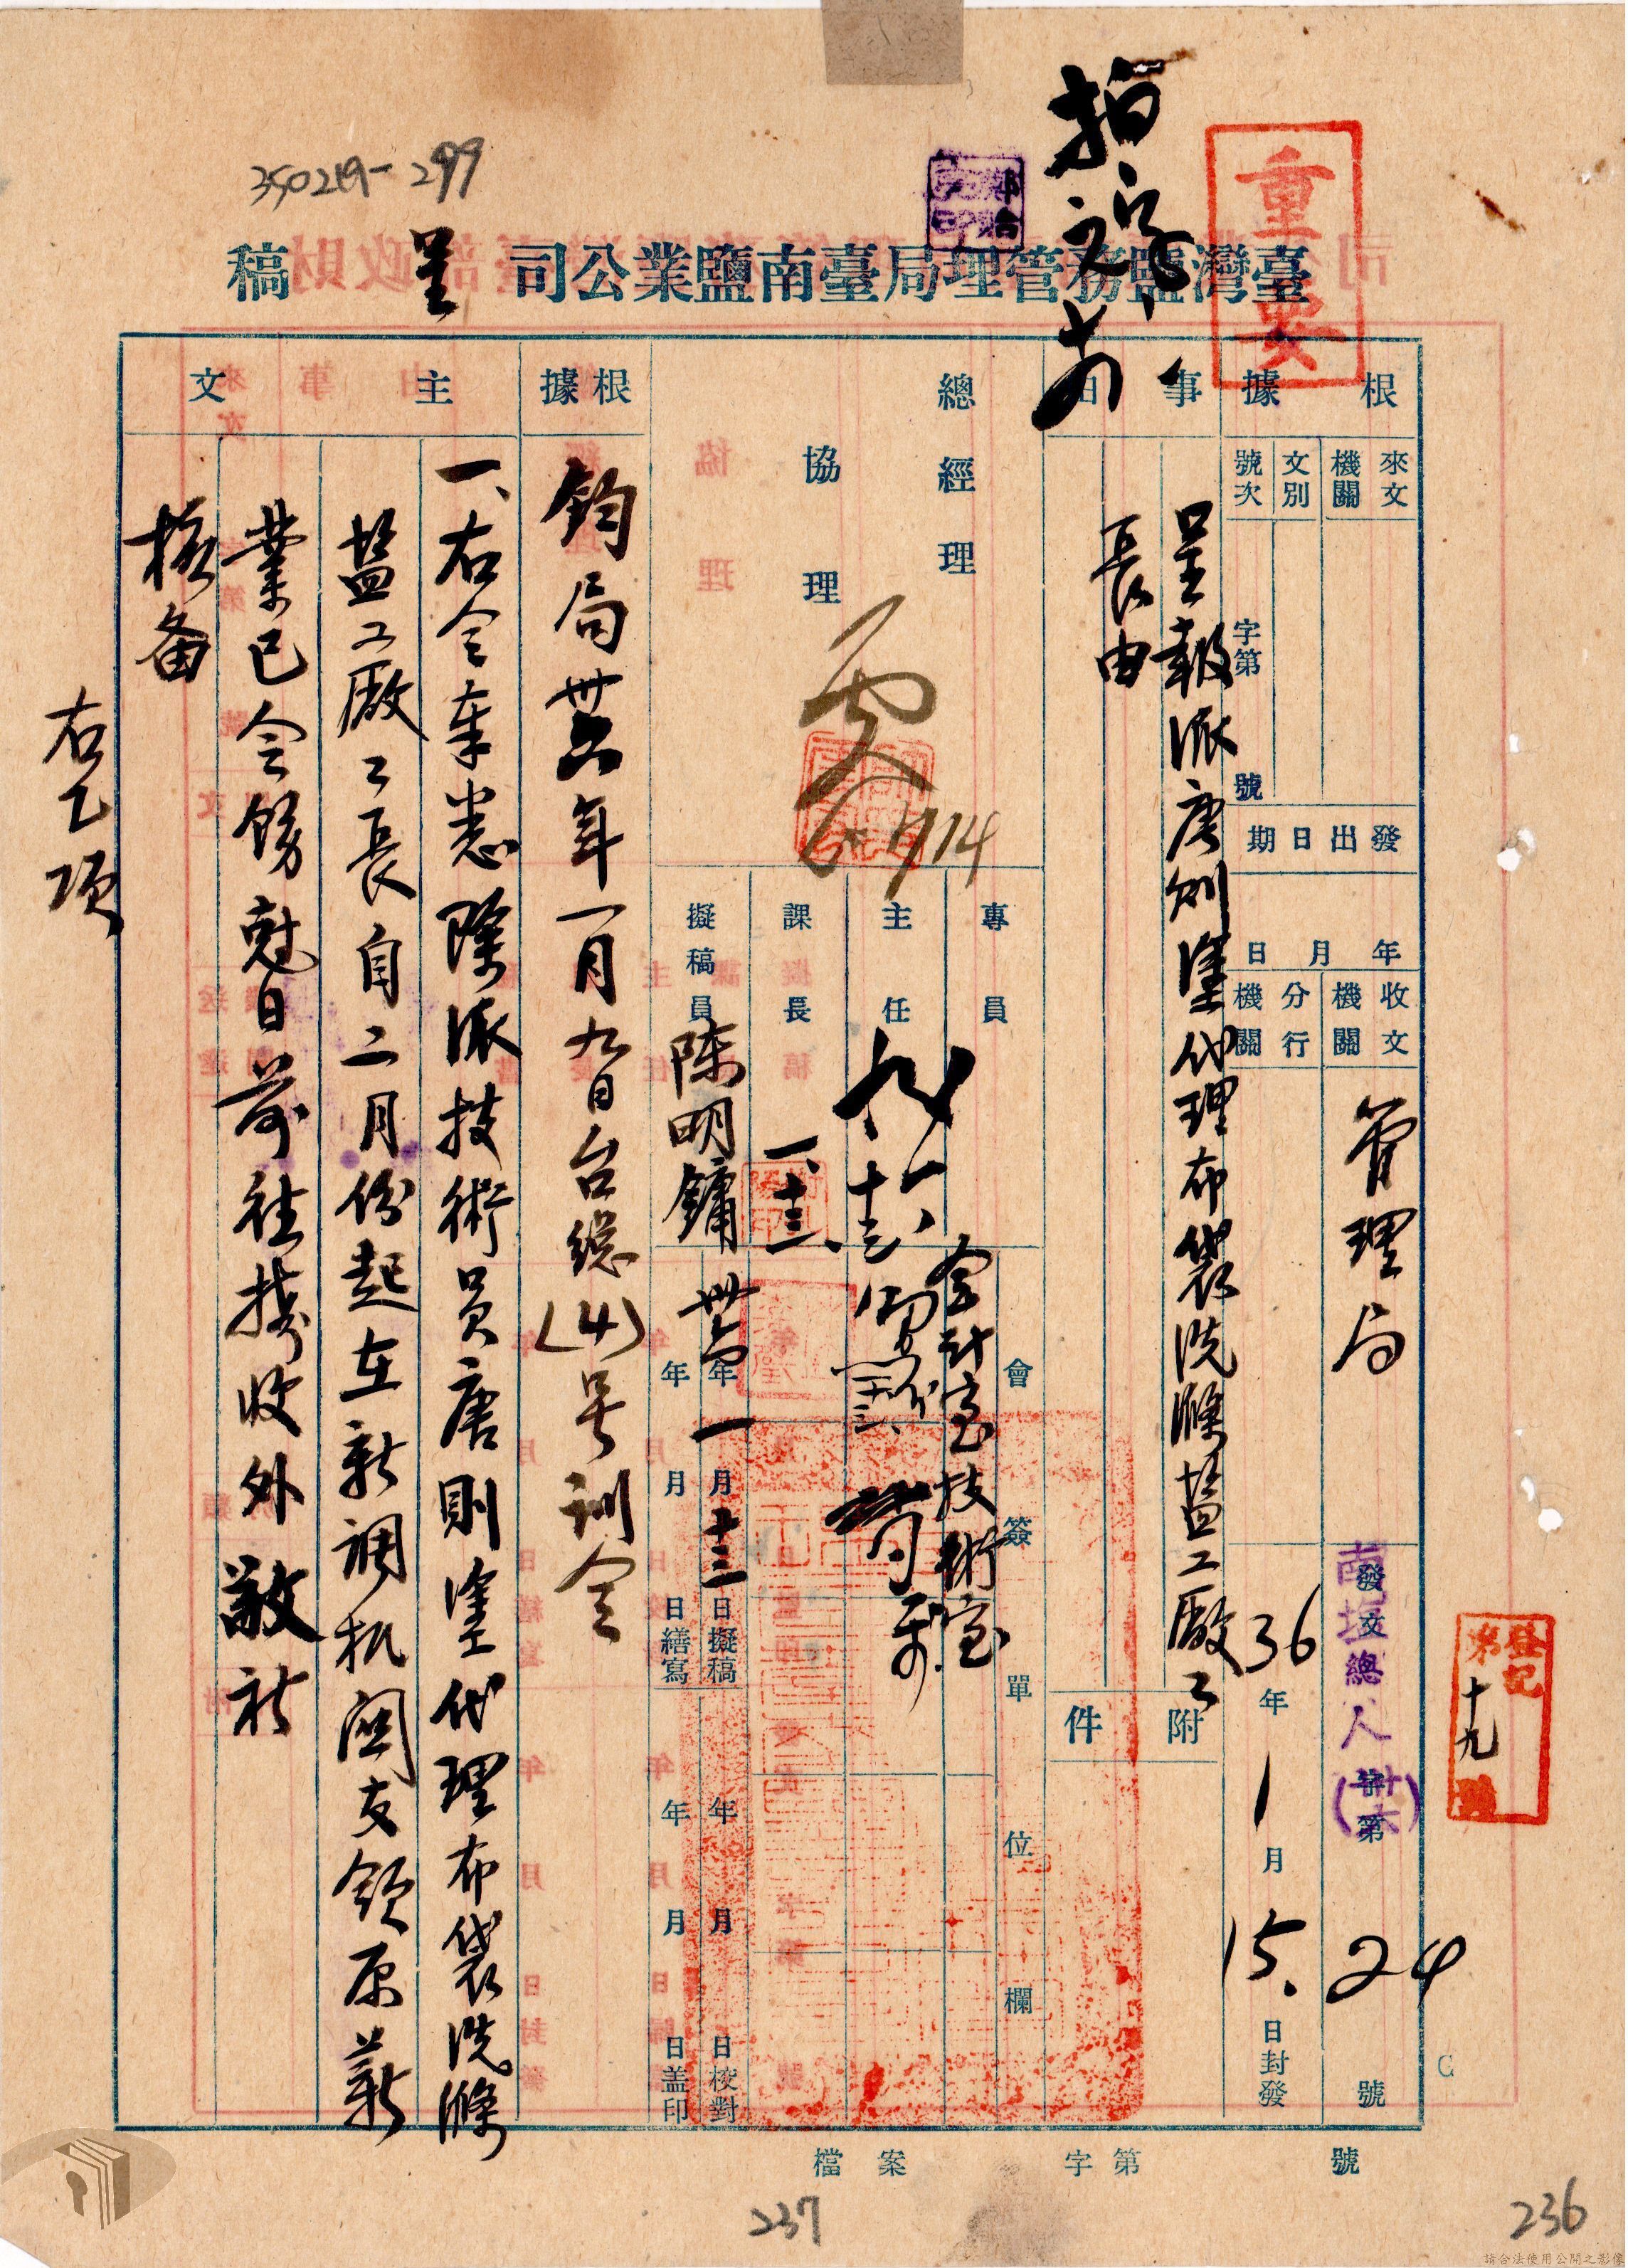 350219-299
重要
臺灣鹽務管理局臺南鹽業公司
呈
稿
根據
來文機關
文別
號次
字第
號
發出日期
年月日
收文機關
分行機關
管理局
發文
南塩總人
字第
24
號
36年1月15.日封發
登記
第十九號
事由
呈報派唐則塗代理布袋洗滌盐工廠工
長由
附件
總經理
協理
6月14
專員
主任
課長
擬稿員
陳明鏞
一、十三、
會簽單位欄
會計室技術室
卅六年一月十三日擬稿
年月日繕寫
年月日校對
年月日蓋印
根據
鈞局卅六年一月九日台總(4)号訓令
主文
一、右令奉悉除派技術員唐則塗代理布袋洗滌
盐工廠工長自二月份起在新調机関支領原薪
業已令飭尅日前往接收外敬祈
核备
右乙項
檔案
字第
號
237
236
請合法使用公開之影像